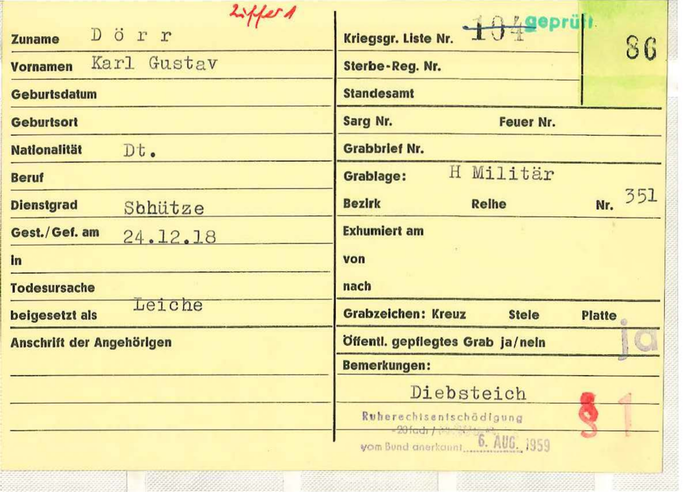 Ziffer 1
Zuname Dörr
Vornamen Karl Gustav
Geburtsdatum
Geburtsort
Nationalität Dt.
Beruf
Dienstgrad Sbhütze
Gest./Gef. am 24.12.18
in
Todesursache
beigesetzt als Leiche
Anschrift der Angehörigen
Kriegsgr. Liste Nr. 104 geprüft
86
Sterbe-Reg. Nr.
Standesamt
Sarg Nr. Feuer Nr.
Grabbrief Nr.
Grablage: H Militär
Bezirk Reihe Nr. 351
Exhumiert am
von
nach
Grabzeichen: Kreuz Stele Platte
Öffentl. gepflegtes Grab ja/nein ja
Bemerkungen:
Diebsteich
Ruherechtsentschädigung
20fach /
vom Bund anerkannt 6. AUG. 1959
§ 1